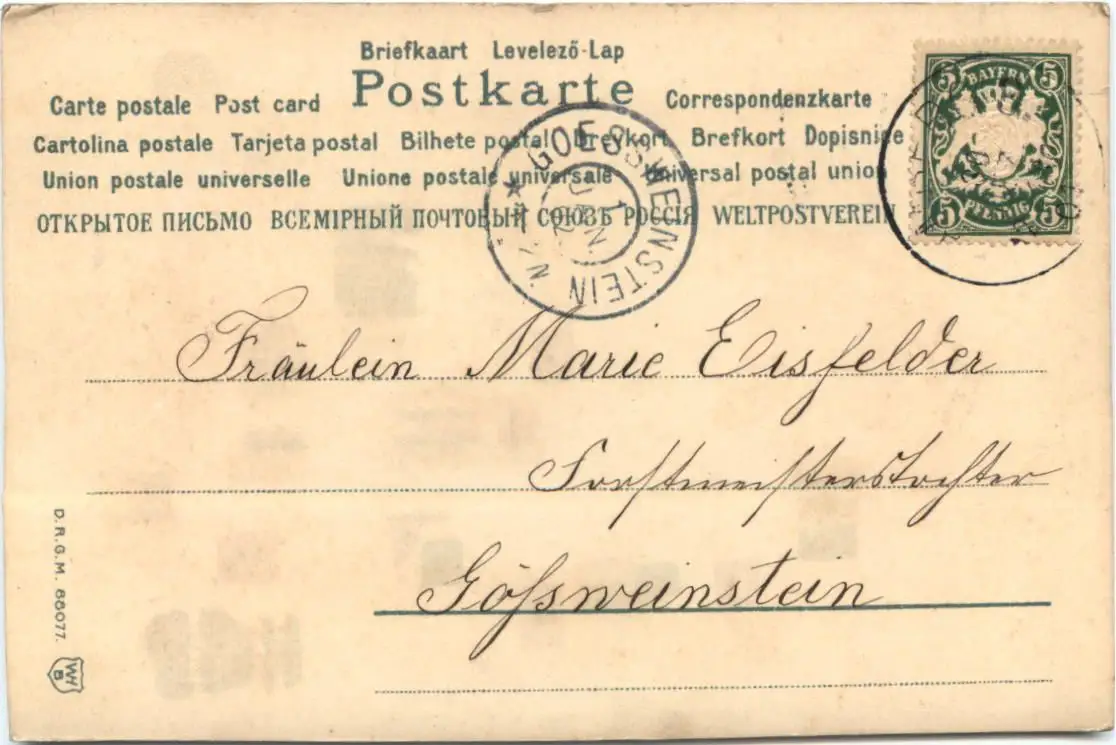 Briefkaart Levelező-Lap
Carte postale Post card Postkarte Correspondenzkarte
Cartolina postale Tarjeta postal Bilhete postal Brevkort Brefkort Dopisnice
Union postale universelle Unione postale universale Universal postal union
ОТКРЫТОЕ ПИСЬМО ВСЕМІРНЫЙ ПОЧТОВЫЙ СОЮЗЪ РОССІЯ WELTPOSTVEREIN
5 BAYERN 5
5 PFENNIG 5
GOESSWEINSTEIN
1 JAN
Fräulein Marie Eisfelder
Forstmeisterstochter
Gößweinstein
D.R.G.M. 88077.
WH
B